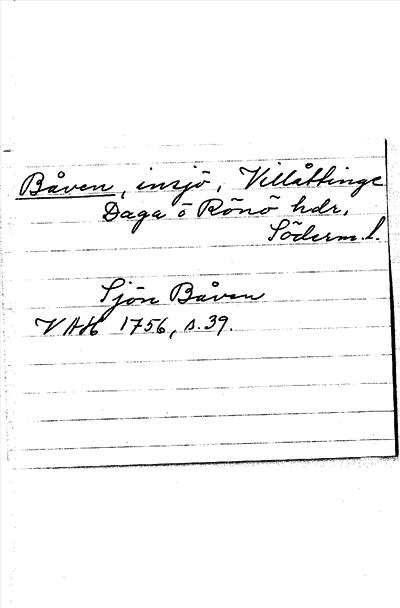 Båven, insjö, Villåttinge
Daga o Rönö hdr,
Söderm. l.
Sjön Båven
VAH 1756, s. 39.